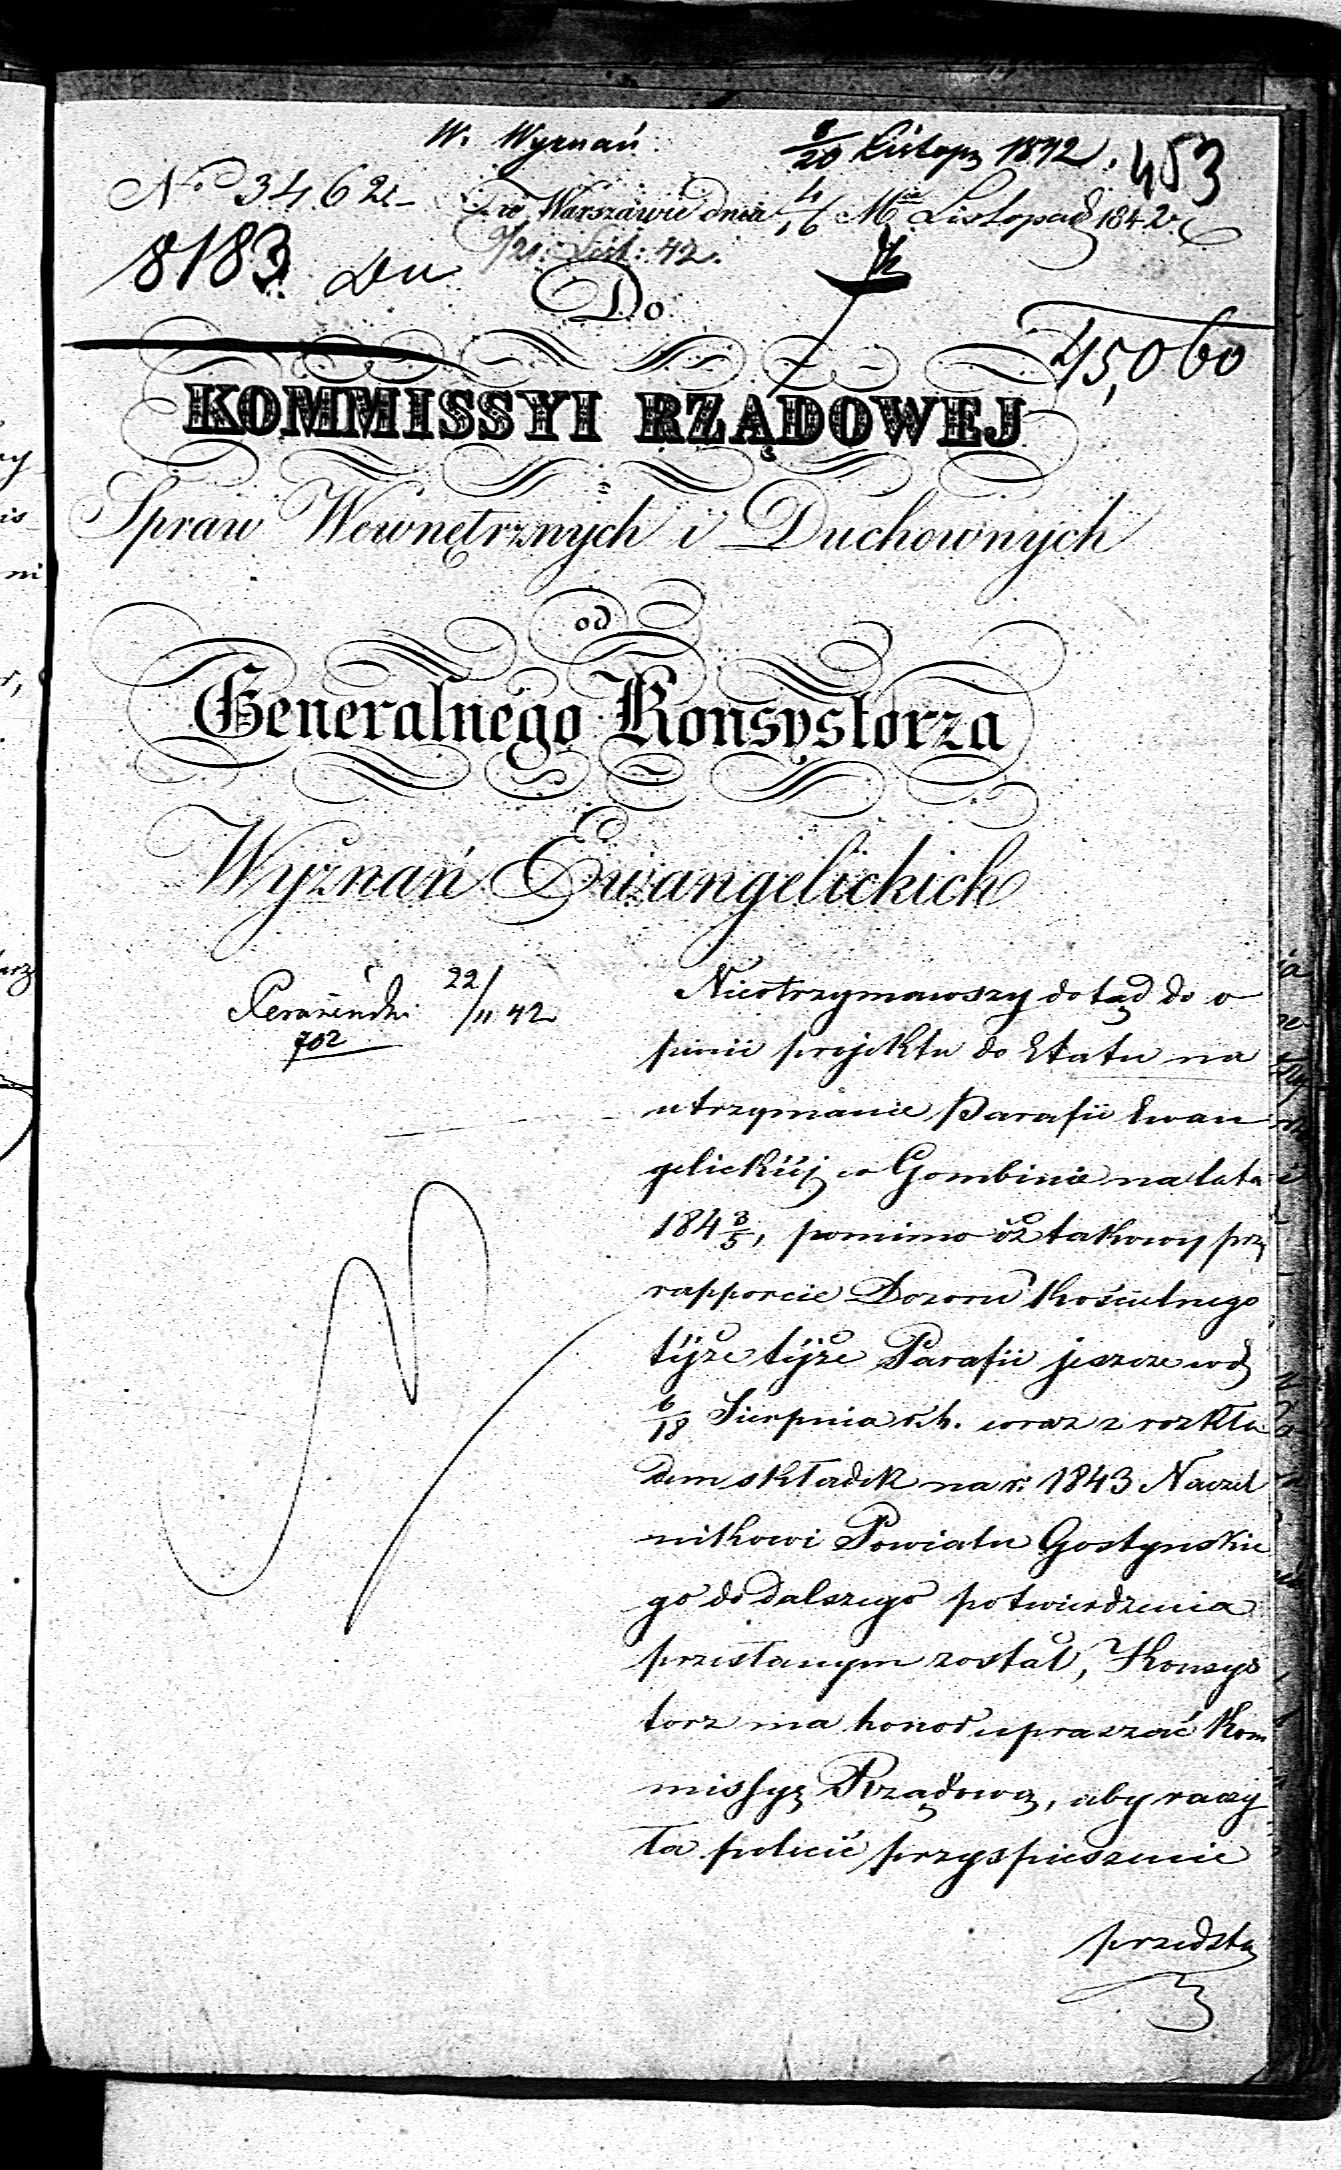 W. Wyznań.
8/20 Listop 1842.
453
No 3462
w Warszawie dnia 4/16 Mca Listopad 1842 r.
9/21 List: 42.
8183 Du
Do
45,060
KOMMISSYI RZĄDOWEJ
Spraw Wewnętrznych i Duchownych
od
Generalnego Konsystorza
Wyznań Ewangelickich
22/11 42
702
Nieotrzymawszy dotąd do o
pinii projektu do Etatu na
utrzymanie Parafii Ewan
gelickiij w Gombinie na lata
184 3/5, pomimo iż takowy prz
rapporcie Dozoru Kościelnego
tijże tijże Parafii jeszcze wd
6/18 Sierpnia r.b. wraz z rozkła
dem składek na r. 1843 Naczel
nikowi Powiatu Gostynskie
go do dalszego potwierdzenia
przesłanym został, Konsys
torz ma honor upraszać Kom
missyę Rządową, aby raczy
ła polecić przyspieszenie
przedsta